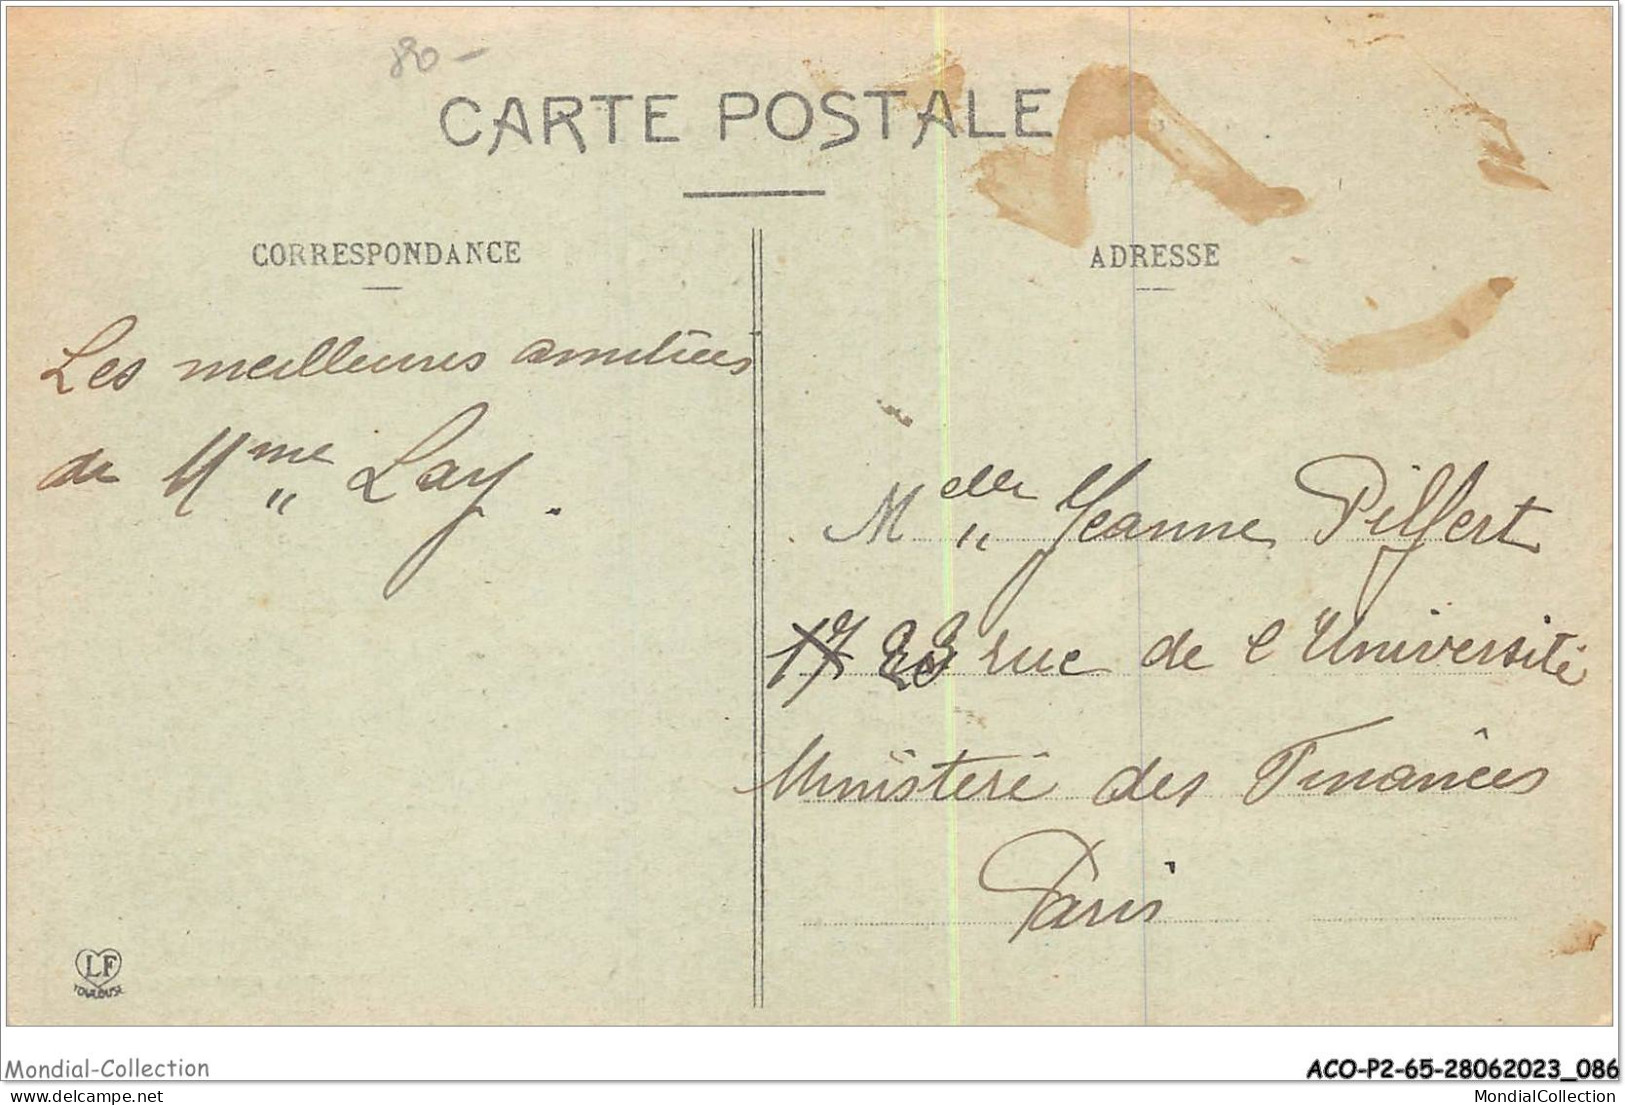 80 -
CARTE POSTALE
CORRESPONDANCE
Les meilleures amitiées
de Mme Lay.
ADRESSE
Mdelle Jeanne Pilfert
17 23 rue de l'Université
Ministère des Finances
Paris
LF
TOULOUSE
Mondial-Collection
ACO-P2-65-28062023_086
delcampe.net
MondialCollection